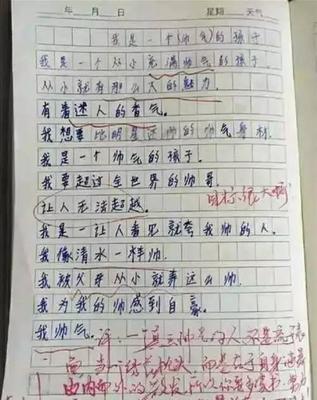 年 月 日 星期 天气
我是一个(帅气)的孩子
我是一个从小充满帅气的孩子.
从小就有那么大的魅力.
有着迷人的香气.
我想要比明星还帅的帅气身材
我是一个帅气的孩子.
我要超过全世界的帅哥.
目标很大啊
让人无法超越.
我是一让人看见就夸我帅的人.
我像清水一样帅.
我被父母从小就养这么帅.
我为我的帅感到自豪.
我帅气.
评:一真正帅气的人不是在于表
面
而是在于自身
由内而外的 所以你